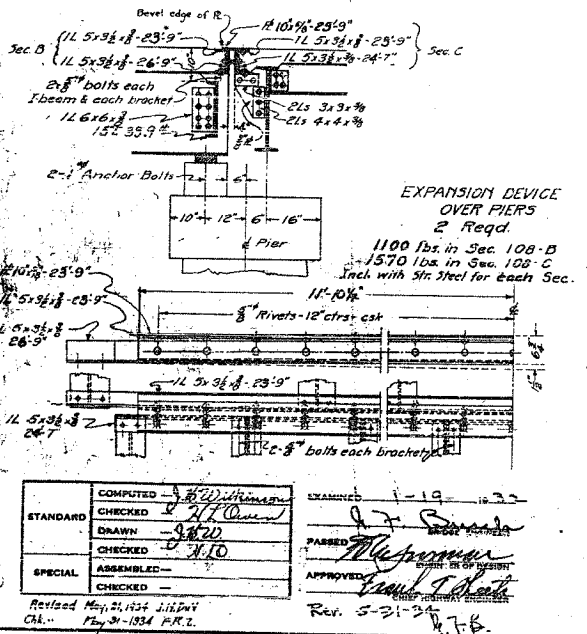 Bevel edge of ℞.
℞ 10"x⅝"-23'-9"
1L 5x3½x⅜-23'-9"
1L 5x3½x⅜-23'-9"
Sec. B
Sec. C
1L 5x3½x⅜-26'-9"
1L 5x3½x⅜-24'-7"
bolts each
I-beam & each bracket
1L 6x6x⅜
2Ls 3x3x⅜
2Ls 4x4x⅜
Anchor Bolts
6"
10" 12" 6" 16"
Pier
EXPANSION DEVICE
OVER PIERS
2 Reqd.
1100 lbs. in Sec. 108-B
1570 lbs. in Sec. 108-C
Incl. with Str. Steel for each Sec.
11'-10½"
Rivets-12" ctrs. csk
26'-9"
1L 5x3½x⅜-23'-9"
1L 5x3½x⅜
24'-7"
bolts each bracket
STANDARD
COMPUTED - J.H. Wilkinson
CHECKED - H L Owen
DRAWN - J.H.W.
CHECKED H.L.O
SPECIAL
ASSEMBLED -
CHECKED -
EXAMINED 1-19 1933
BRIDGE ENGINEER
PASSED
ENGINEER OF DESIGN
APPROVED Frank T. Sheets
CHIEF HIGHWAY ENGINEER
Revised May, 21, 1934
Chk. " May-31-1934
Rev. 5-31-34